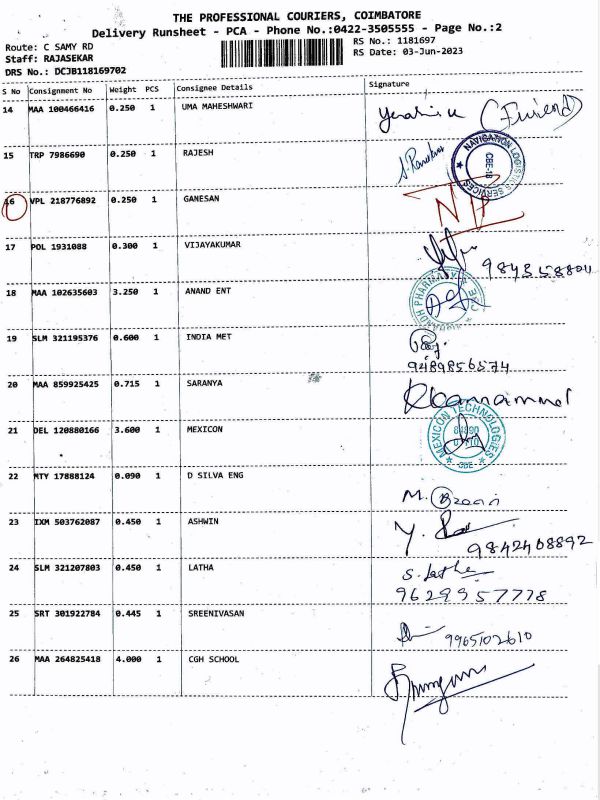 THE PROFESSIONAL COURIERS, COIMBATORE
Delivery Runsheet - PCA - Phone No.:0422-3505555 - Page No.:2
Route: C SAMY RD
RS No.: 1181697
Staff: RAJASEKAR
RS Date: 03-Jun-2023
DRS No.: DCJB118169702
S No Consignment No Weight PCS Consignee Details Signature
14 MAA 100466416 0.250 1 UMA MAHESHWARI (Friend)
15 TRP 7986690 0.250 1 RAJESH
NAVIGATION LOGISTICS SERVICES CBE-18
16 VPL 218776892 0.250 1 GANESAN
17 POL 1931088 0.300 1 VIJAYAKUMAR
18 MAA 102635603 3.250 1 ANAND ENT
19 SLM 321195376 0.600 1 INDIA MET
9489856574
20 MAA 859925425 0.715 1 SARANYA
21 DEL 120880166 3.600 1 MEXICON
MEXICON TECHNOLOGIES CBE
22 MTY 17888124 0.090 1 D SILVA ENG
23 IXM 503762087 0.450 1 ASHWIN
9842408892
24 SLM 321207803 0.450 1 LATHA S. Latha
9629957778
25 SRT 301922784 0.445 1 SREENIVASAN
9965102610
26 MAA 264825418 4.000 1 CGH SCHOOL